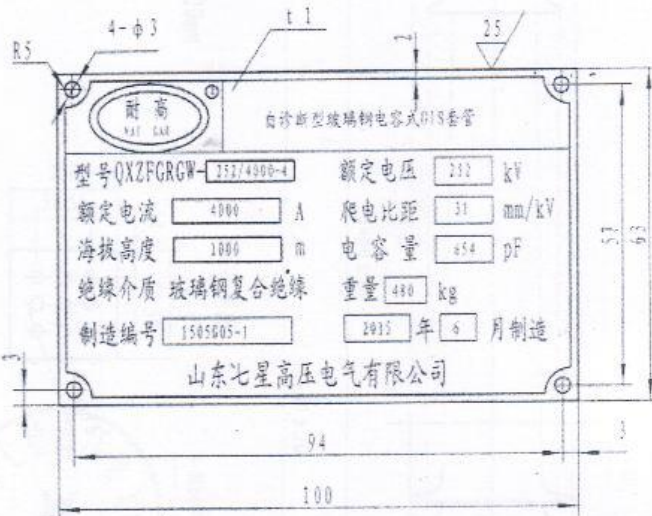 4-φ3
t1
R5
2
25
耐高
NAI GAO
自诊断型玻璃钢电容式GIS套管
型号QXZFGRGW-252/4000-4 额定电压 252 kV
额定电流 4000 A 爬电比距 31 mm/kV
海拔高度 1000 m 电容量 654 pF
绝缘介质 玻璃钢复合绝缘 重量 480 kg
制造编号 1505G05-1 2015 年 6 月制造
山东七星高压电气有限公司
57
63
3
94
3
100